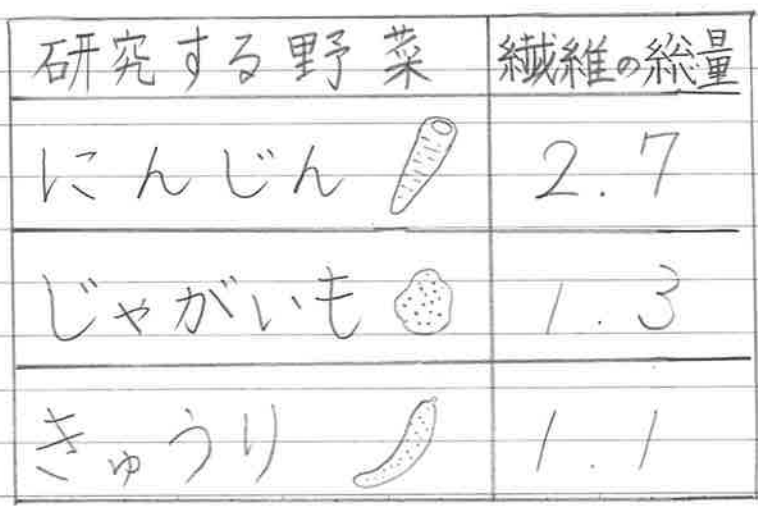 研究する野菜 繊維の総量
にんじん 2.7
じゃがいも 1.3
きゅうり 1.1